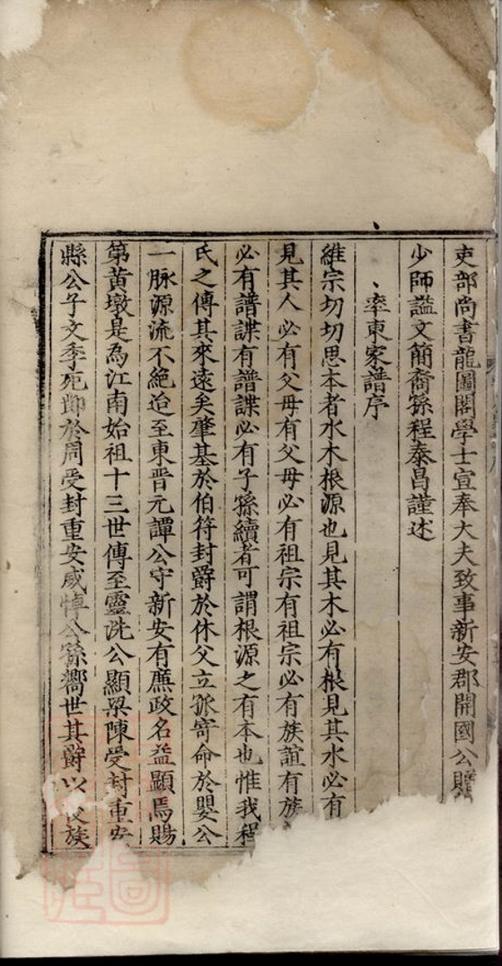 吏部尚書龍圖閣學士宣奉大夫致事新安郡開國公贈
少師謚文簡裔孫程泰昌謹述
率東家譜序
維宗切切思本者水木根源也見其木必有根見其水必有
見其人必有父母有父母必有祖宗有祖宗必有族誼有族
必有譜諜有譜諜必有子孫續者可謂根源之有本也惟我程
氏之傳其來遠矣肇基於伯符封爵於休父立孤寄命於嬰公
一脉源流不絕迨至東晋元譚公守新安有廉政名益顯焉賜
第黄墩是為江南始祖十三世傳至靈洗公顯梁陳受封重安
縣公子文季死節於周受封重安威悼公孫嚮世其爵以族